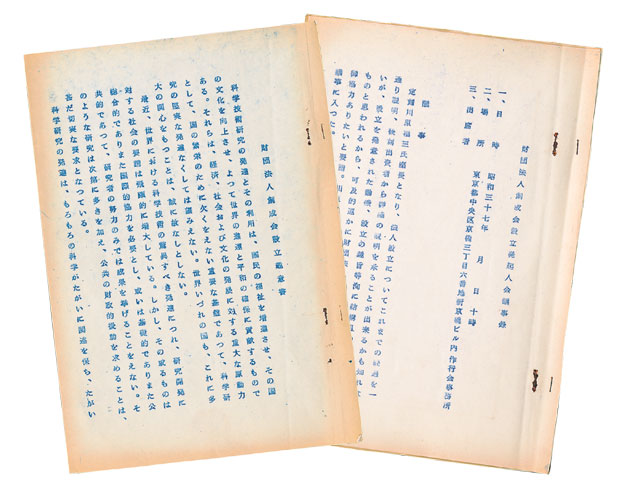 財団法人創成会設立趣意書
科学技術研究の発達とその利用は、国民の福祉を増進させ、その国
の文化を向上させ、よつて世界の進運と平和の確保に貢献するもので
ある。それらは、経済、社会および文化の発展に対する重大な原動力
として、国の繁栄のために欠くをえない重要な基盤であつて、科学研
究の堅実な発達なくしては望みえない。世界いづれの国も、これに多
大の関心をもつことは、誠に故なしとしない。
最近、世界における科学技術の驚異すべき発達につれ、研究開発に
対する社会の要請は飛躍的に増大している。しかし、その或るものは
綜合的でありまた国際的協力を必要とし、或いは基礎的でありまた公
共的であつて、研究者の努力のみでは成果を挙げることをえない。そ
のような研究は次第に多きを加え、公共の財政的援助を求めることは、
甚だ切実な要求となつている。
科学研究の発達は、もろもろの科学がたがいに関連を保ち、たがい
財団法人創成会設立発起人会議事録
一、日時 昭和三十七年 月 日 十時
二、場所 東京都中央区京橋三丁目六番地新京橋ビル内作行会事務所
三、出席者
議事
定刻川原福三氏座長となり、法人設立についてこれまでの経過を一
通り説明、後刻出資者から詳細の説明を承ることが出来るかも知れな
いが、設立を発意された動機、設立の趣旨等
ものと思われるから、可及的速かに財団法
御協力ありたいと要請。
議事に入つた。